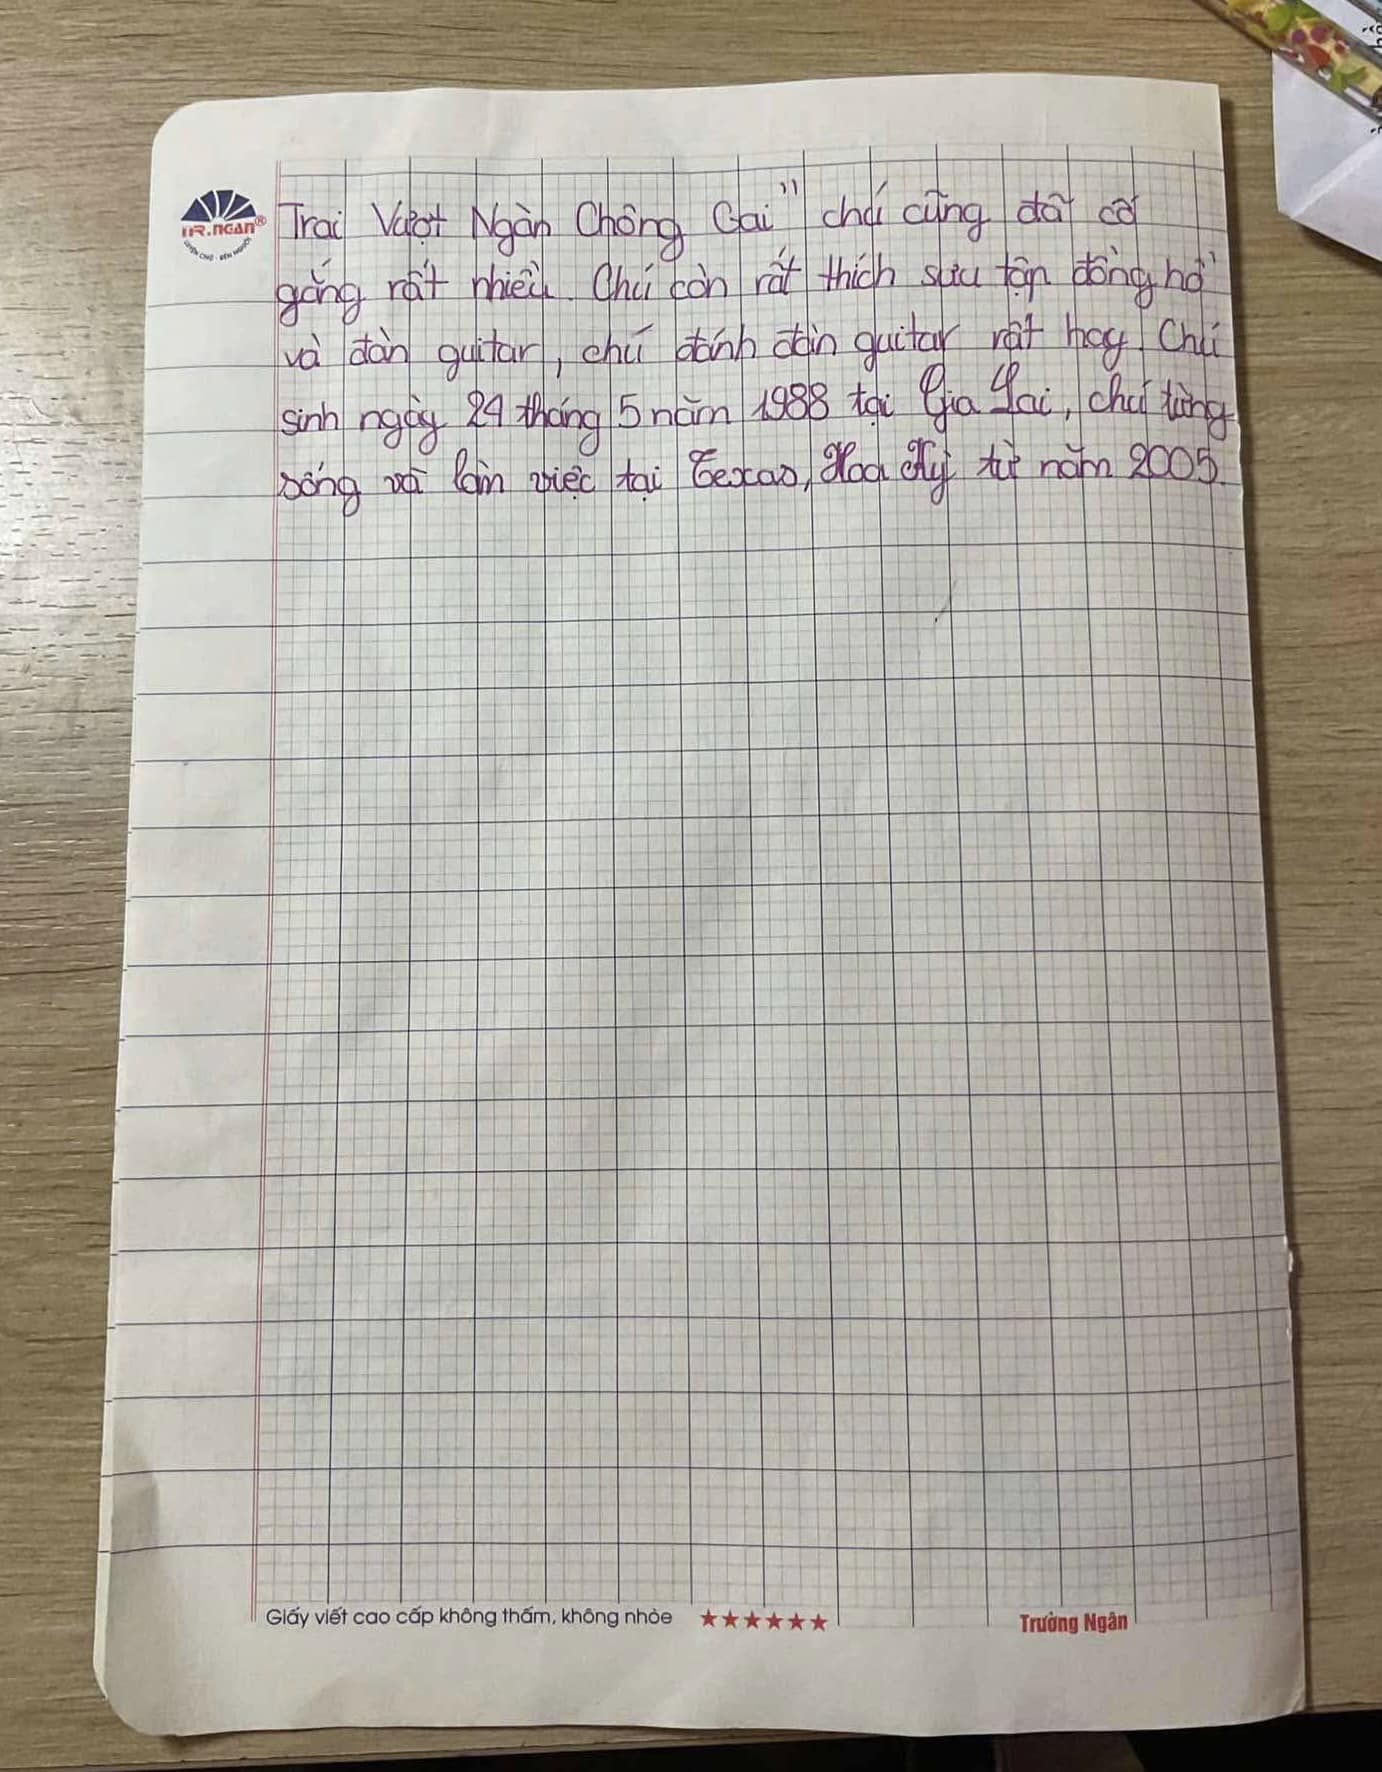 TR.NGAN®
LUYỆN CHỮ - RÈN NGƯỜI
Trai Vượt Ngàn Chông Gai" chú cũng đã cố
gắng rất nhiều. Chú còn rất thích sưu tập đồng hồ
và đàn guitar, chú đánh đàn guitar rất hay. Chú
sinh ngày 24 tháng 5 năm 1988 tại Gia Lai, chú từng
sống và làm việc tại Texas, Hoa Kỳ từ năm 2005.
Giấy viết cao cấp không thấm, không nhòe ★★★★★★ Trường Ngân